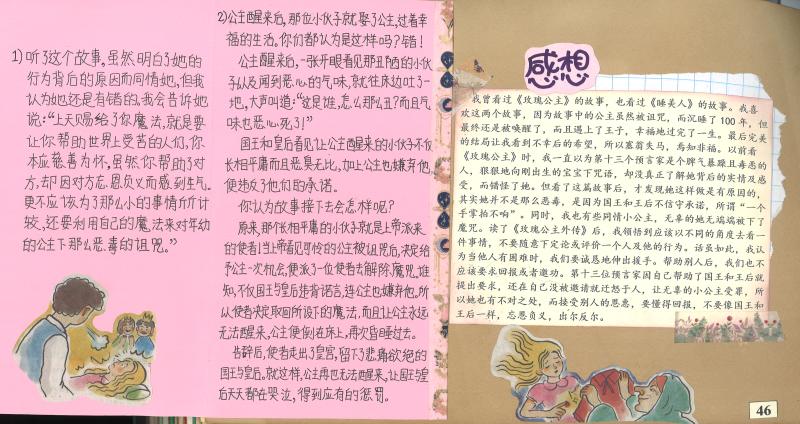 1)听了这个故事,虽然明白了她的
行为背后的原因而同情她,但我
认为她还是有错的。我会告诉她
说:“上天赐给了你魔法,就是要
让你帮助世界上受苦的人们,你
本应慈善为怀,虽然你帮助了对
方,却因对方忘恩负义而感到生气,
更不应该为了那么小的事情斤斤计
较,还要利用自己的魔法来对年幼
的公主下那么恶毒的诅咒。”
2)公主醒来后,那位小伙子就娶了公主,过着幸
福的生活。你们都认为是这样吗?错!
公主醒来后,一张开眼看见那丑陋的小伙
子以及闻到恶心的气味,就往床边吐了一
地,大声叫道:“这是谁,怎么那么丑?而且气
味也恶心死了!”
国王和皇后看见让公主醒来的小伙子不仅
长相平庸而且恶臭无比,加上公主也嫌弃他,
便违反了他们的承诺。
你认为故事接下去会怎样呢?
原来,那长相平庸的小伙子就是上帝派来
的使者!当上帝看见可怜的公主被诅咒后,决定给
予公主一次机会,便派了一位使者去解除魔咒。谁
知,不仅国王与皇后违背诺言,连公主也嫌弃他。所
以使者决定取回所设下的魔法,而且让公主永远
无法醒来,公主便倒在床上,再次昏睡过去。
当晚后,使者走出了皇宫,留下了悲痛欲绝的
国王与皇后。就这样,公主再也无法醒来,让国王与皇
后天天都在哭泣,得到应有的惩罚。
感想
我曾看过《玫瑰公主》的故事,也看过《睡美人》的故事。我喜
欢这两个故事,因为故事中的公主虽然被诅咒,而沉睡了 100 年,但
最终还是被唤醒了,而且遇上了王子,幸福地过完了一生。最后完美
的结局让我看到不幸后的希望,所以塞翁失马,焉知非福。以前看
《玫瑰公主》时,我一直以为第十三个预言家是个脾气暴躁且毒恶的
人,狠狠地向刚出生的宝宝下咒语,却没真正了解她背后的实情及感
受,而错怪了她。但看了这篇故事后,才发现她这样做是有原因的,
其实她并不是那么恶毒,是因为国王和王后不信守承诺,所谓“一个
手掌拍不响”。同时,我也有些同情小公主,无辜的她无端端被下了
魔咒。读了《玫瑰公主外传》后,我领悟到应该以不同的角度去看一
件事情,不要随意下定论或评价一个人及他的行为。话虽如此,我认
为当他人有困难时,我们要诚恳地伸出援手。帮助别人后,我们也不
应该要求回报或者邀功。第十三位预言家因自己帮助了国王和王后就
提出要求,还在自己没被邀请就迁怒于人,让无辜的小公主受罪,所
以她也有不对之处,而接受别人的恩惠,要懂得回报,不要像国王和
王后一样,忘恩负义,出尔反尔。
46